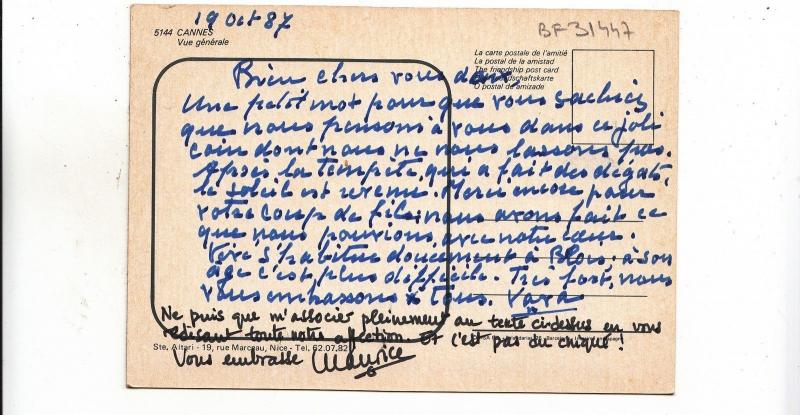 19 Oct 87
BF31447
5144 CANNES
Vue générale
La carte postale de l'amitié
La postal de la amistad
The friendship post card
O postal de amizade
Bien chers vous deux,
Un petit mot pour que vous sachiez
que nous pensons à vous dans ce joli
coin dont nous ne nous lassons pas.
Après la tempête, qui a fait des dégats,
le soleil est revenu. Merci encore pour
votre coup de fil: nous avons fait ce
que nous pouvions, avec notre cœur.
s'habitue doucement à Blois. à son
âge c'est plus difficile. Très fort, nous
vous embrassons tous. Vava
Ne puis que m'associer pleinement au texte cidessus en vous
disant toute notre affection et c'est pas du chiqué!
Ste. Altari - 19, rue Marceau, Nice - Tel. 62.07.82
Vous embrasse Maurice